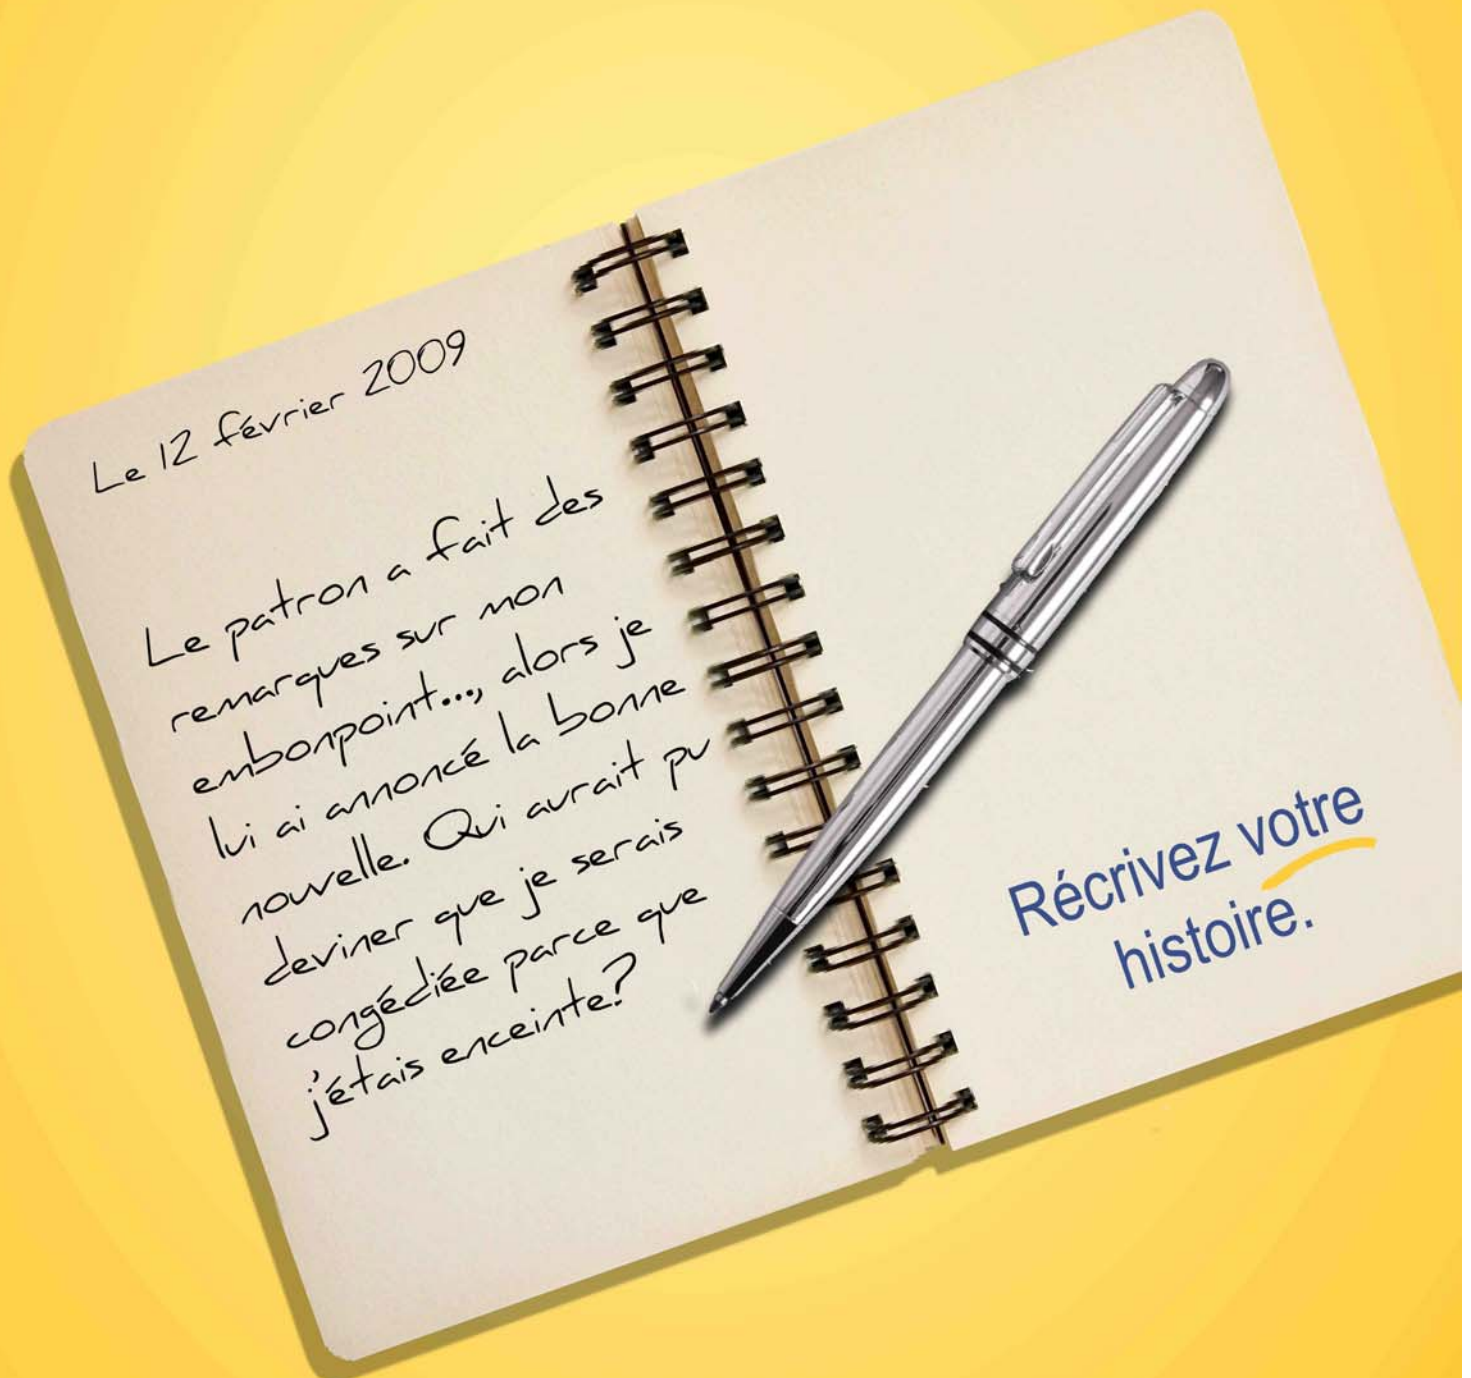 Le 12 février 2009
Le patron a fait des
remarques sur mon
embonpoint..., alors je
lui ai annoncé la bonne
nouvelle. Qui aurait pu
deviner que je serais
congédiée parce que
j'étais enceinte?
Récrivez votre
histoire.